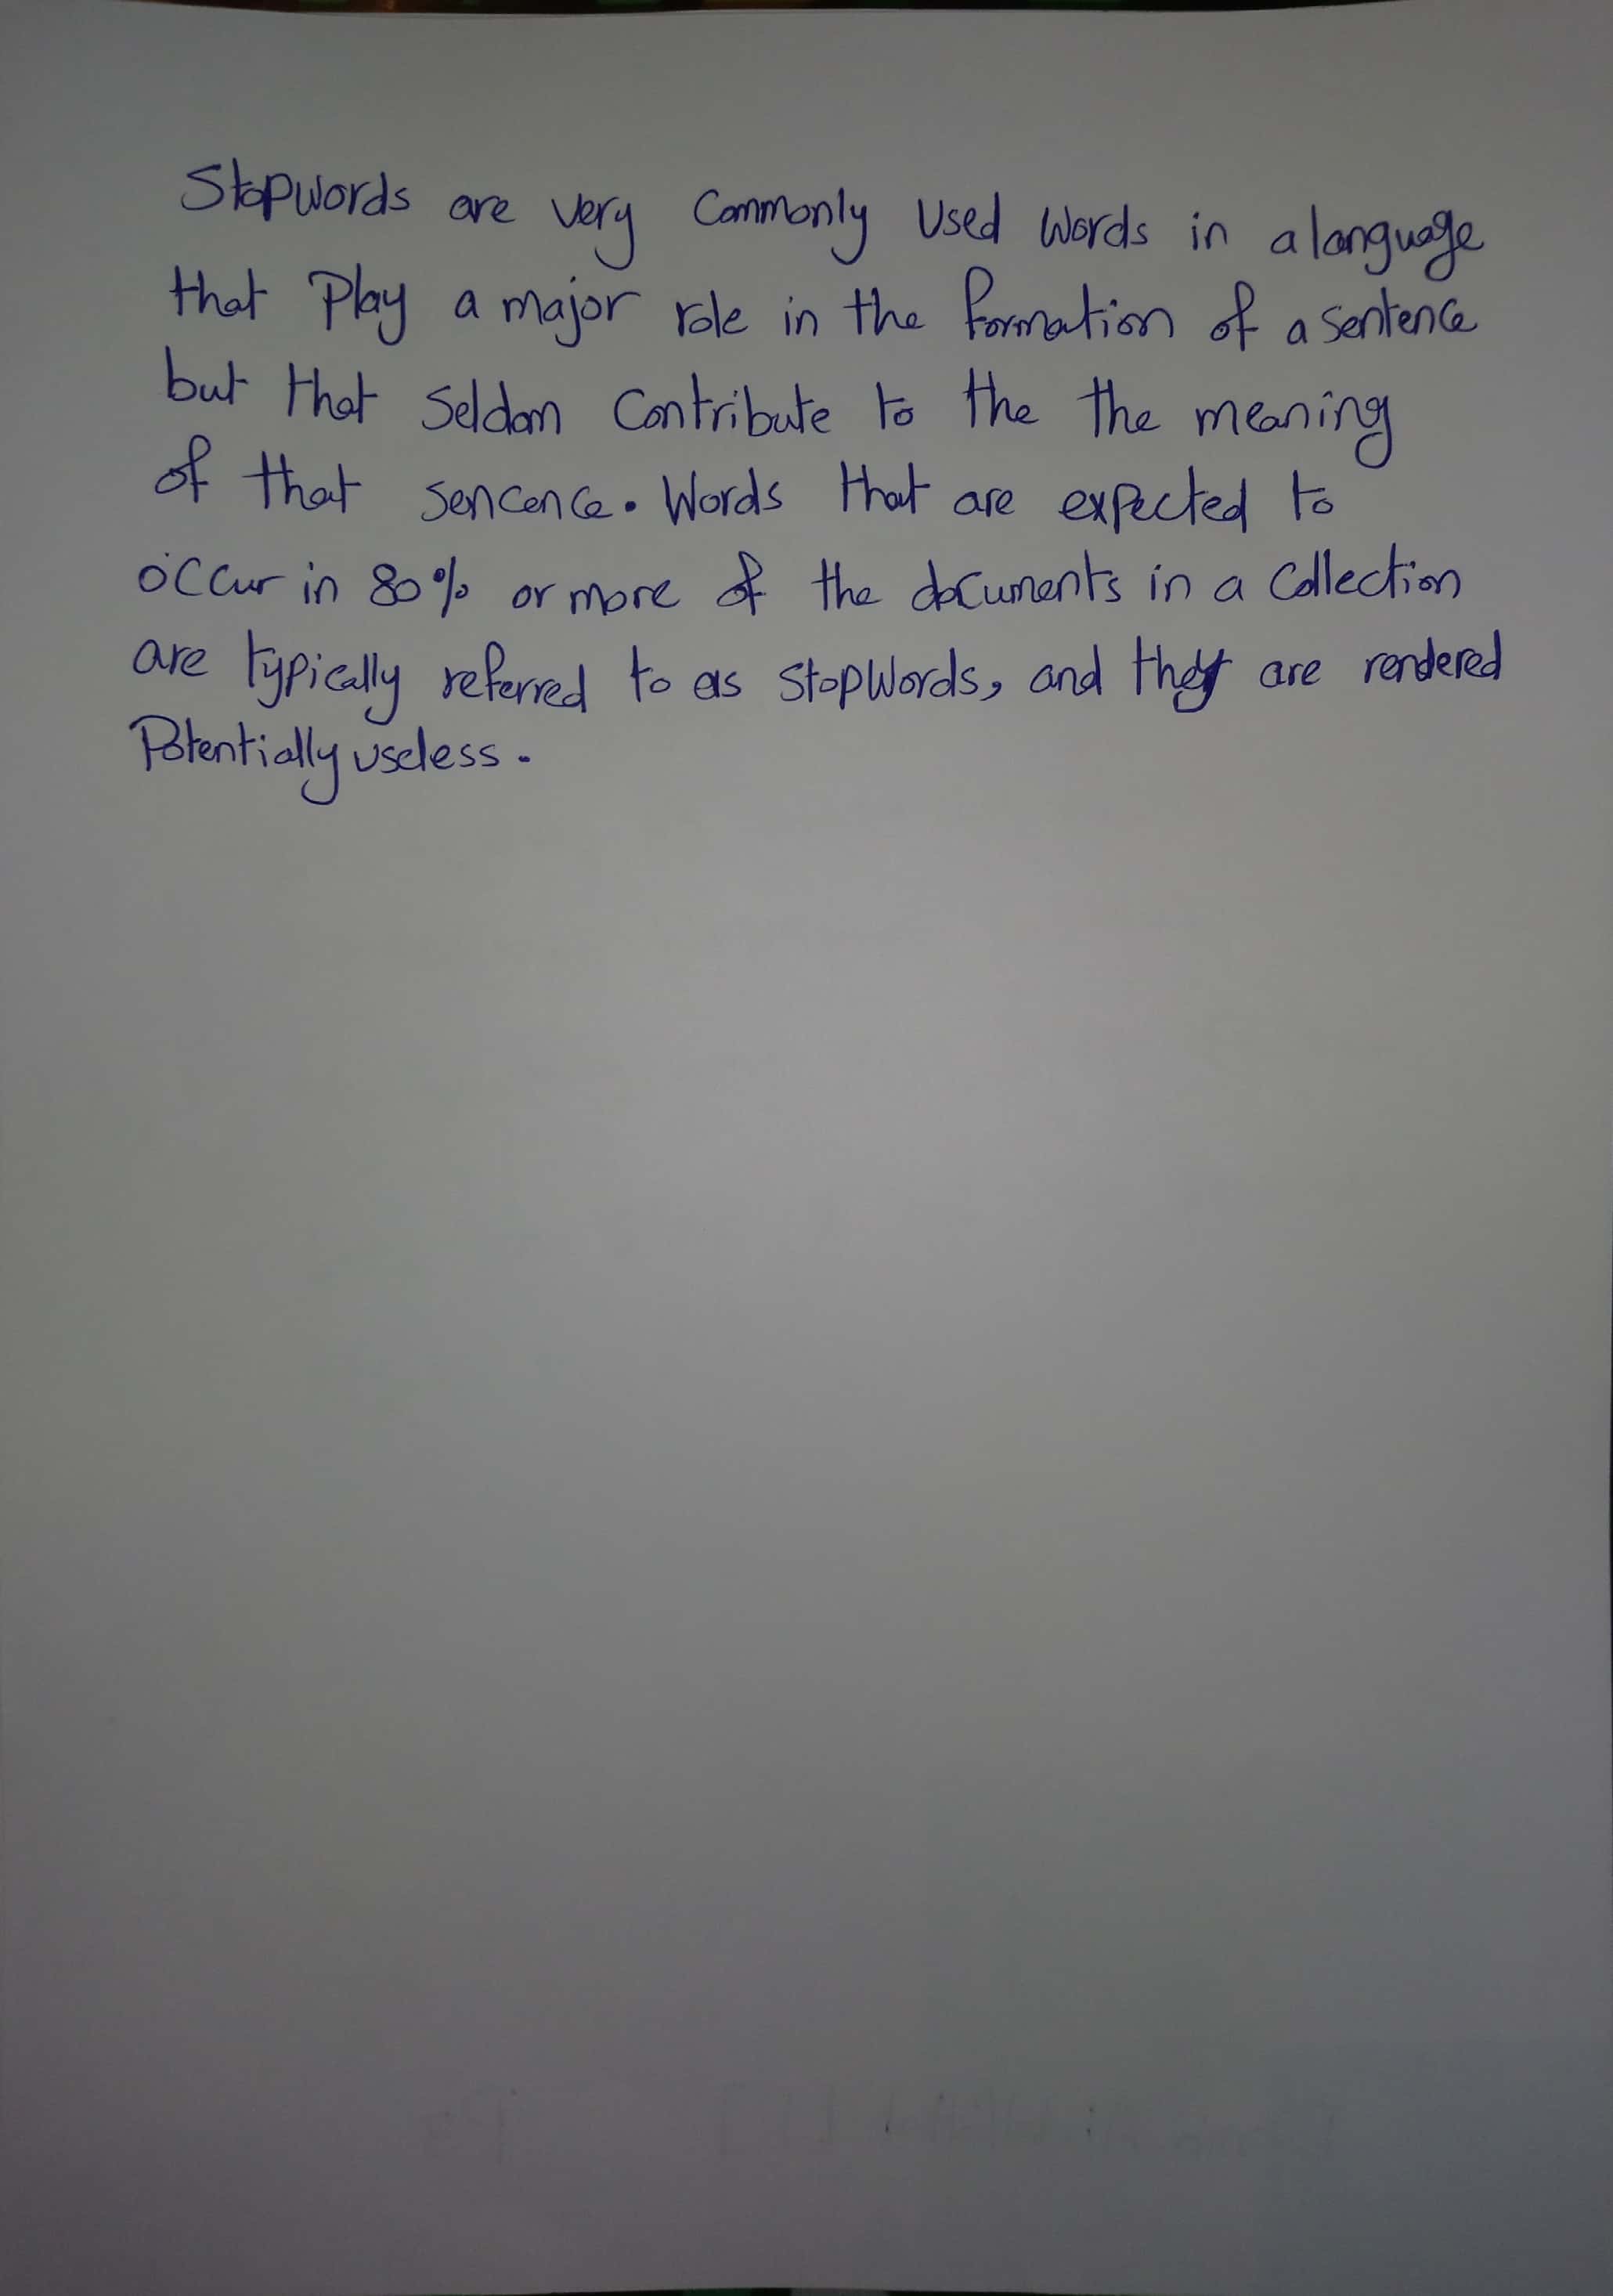 Stopwords are very commonly used words in a language
that play a major role in the formation of a sentence
but that seldom contribute to the the meaning
of that sencence. Words that are expected to
occur in 80% or more of the documents in a collection
are typically referred to as stopwords, and they are rendered
Potentially useless.